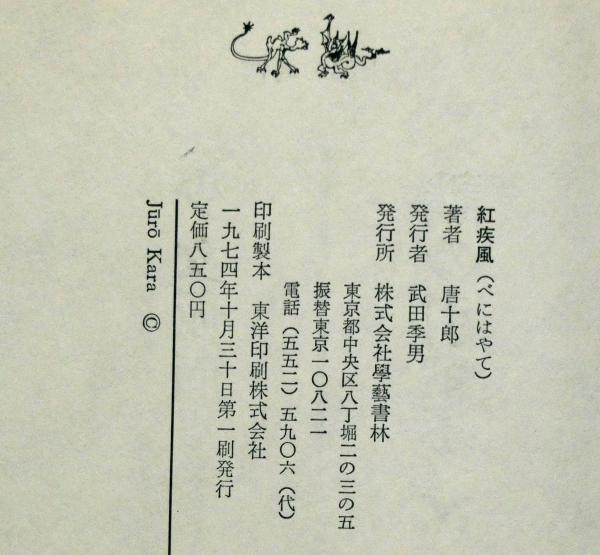 紅疾風（べにはやて）
著者　唐十郎
発行者　武田季男
発行所　株式会社學藝書林
東京都中央区八丁堀二の三の五
振替東京一〇八二一
電話（五五二）五九〇六（代）
印刷製本　東洋印刷株式会社
一九七四年十月三十日第一刷発行
定価八五〇円
Jūrō Kara ©